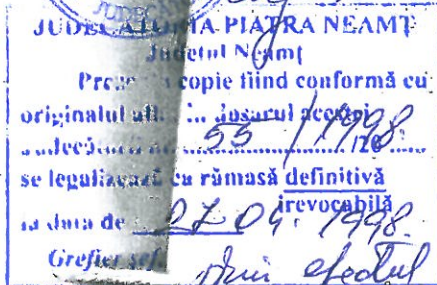 JUDECĂTORIA PIATRA NEAMŢ
Judeţul Neamţ
copie fiind conformă cu
originalul dosarul acestei
55 / 1998
se legalizează ca rămasă definitivă
irevocabilă
la data de 27 04 1998.
Grefier şef
prin efectul